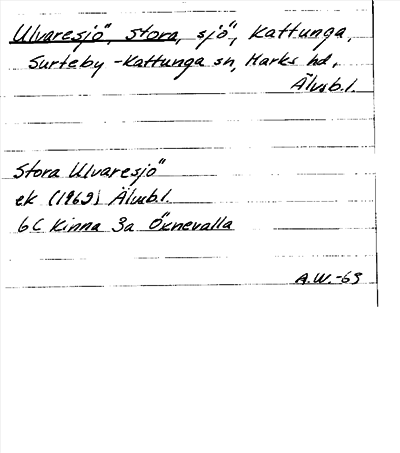 Ulvaresjö, Stora, sjö, Kattunga,
Surteby-Kattunga sn, Marks hd,
Älvsb.l.
Stora Ulvaresjö
ek (1962) Älvsb.l.
6C Kinna 3a Öxnevalla
A.W.-63